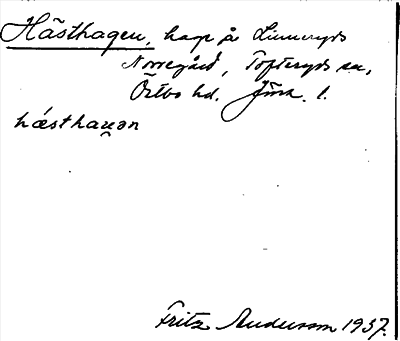 Hästhagen, hage på Linneryds
Norregård, Tofteryds sn,
Östbo hd. Jönk. l.
hásthaꭒən
Fritz Andersson 1937.